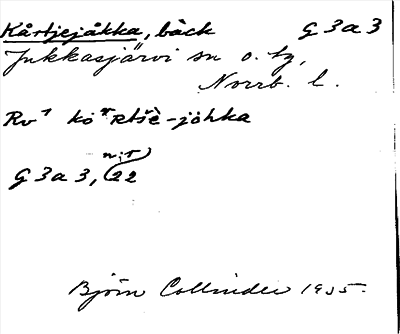 Kårtjejåkka, bäck G 3 a 3
Jukkasjärvi sn o. tg,
Norrb. l.
Rv⁷ -jòhka
G 3 a 3, 22
Björn Collinder 1935.